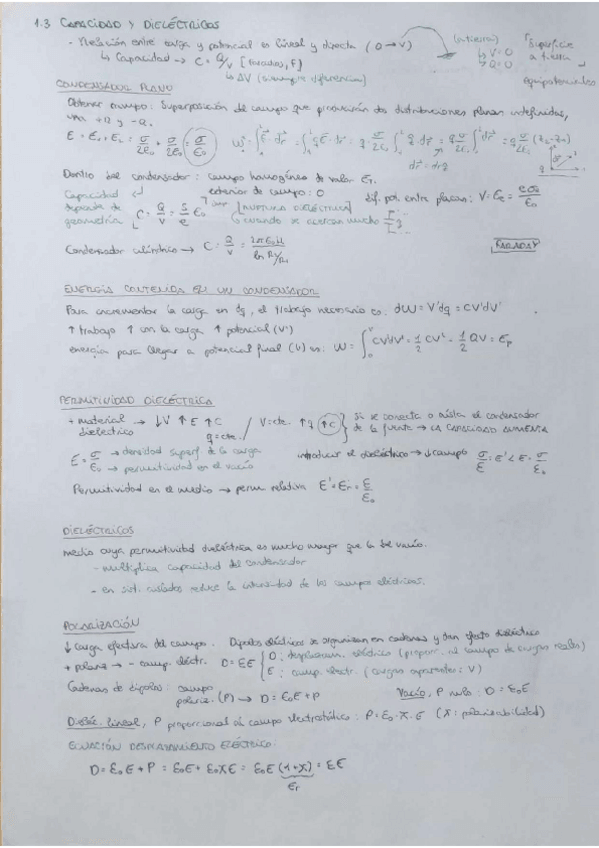 1.3 CAPACIDAD Y DIELÉCTRICOS
- Relación entre carga y potencial es lineal y directa (Q → V) (a tierra) "Superficie a tierra"
↳ Capacidad → C = Q/V [faradios, F] ↳ V=0 ↳ Q=0
↳ ΔV (siempre diferencia) equipotenciales
CONDENSADOR PLANO
Obtener campo: Superposición del campo que producirán dos distribuciones planas indefinidas,
una +Q y -Q.
E = E₁ + E₂ = σ/2ε₀ + σ/2ε₀ = σ/ε₀
Dentro del condensador: campo homogéneo de valor
Capacidad depende de geometría exterior de campo: 0 dif. pot. entre placas:
C = Q/V = S/e ε₀ [RUPTURA DIELÉCTRICA] cuando se acercan mucho
Condensador cilíndrico → C = Q/V = 2πε₀H / ln R₂/R₁ FARADAY
ENERGÍA CONTENIDA EN UN CONDENSADOR
Para incrementar la carga en dq, el trabajo necesario es: dW = V'dq = CV'dV'
↑ trabajo ↑ con la carga ↑ potencial (V')
energía para llegar a potencial final (V) es: W = ∫₀ⱽ CV'dV' = 1/2 CV² = 1/2 QV = Eₚ
PERMITIVIDAD DIELÉCTRICA
+ material dieléctrico → ↓V ↑E ↑C q=cte. / V=cte. ↑q ↑C } Si se conecta o aísla el condensador
de la fuente → LA CAPACIDAD AUMENTA
E = σ/ε₀ → densidad superf. de la carga → permitividad en el vacío introducir el dieléctrico → ↓campo σ/ε = E' < E = σ/ε₀
Permitividad en el medio → perm relativa E' = εr = ε/ε₀
DIELÉCTRICOS
medio cuya permitividad dieléctrica es mucho mayor que la del vacío.
- multiplica capacidad del condensador
- en sist. aislados reduce la intensidad de los campos eléctricos.
POLARIZACIÓN
↓ carga efectiva del campo. Dipolos eléctricos se organizan en cadenas y dan efecto dieléctrico
+ polariz → - camp. eléctr. D = εE { D: desplazam. eléctrico (proporc. al campo de cargas reales)
E: camp. eléctr. (cargas aparentes: V)
Cadenas de dipolos: campo polariz. (P) → D = ε₀E + P Vacío, P nulo: D = ε₀E
Dieléc. lineal, P proporcional al campo electrostático: P = ε₀ · χ · E (χ: polarizabilidad)
ECUACIÓN DESPLAZAMIENTO ELÉCTRICO:
D = ε₀E + P = ε₀E + ε₀χE = ε₀E (1+χ) = εE
εr